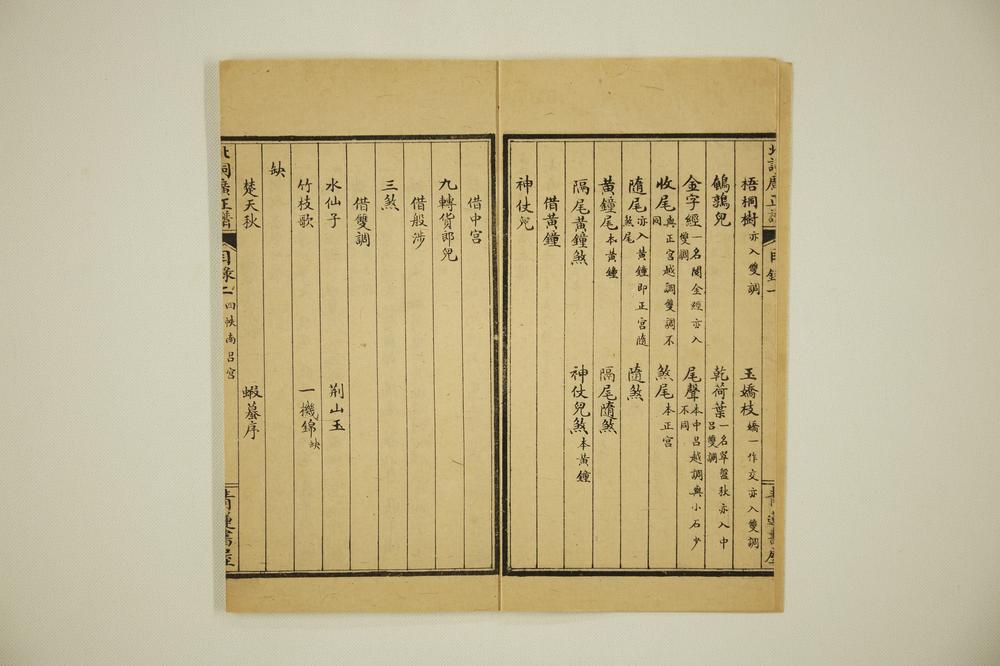 梧桐樹亦入雙調 玉嬌枝嬌一作交亦入雙調
鵪鶉兒 乾荷葉一名翠盤秋亦入中呂雙調
金字經一名閱金經亦入雙調 尾聲本中呂越調與小石少不同
收尾與正宮越調雙調不同 煞尾本正宮
隨尾亦入黃鐘即正宮隨煞尾 隨煞
黃鐘尾本黃鐘 隔尾隨煞
隔尾黃鐘煞 神仗兒煞本黃鐘
借黃鐘
神仗兒
借中宮
九轉貨郎兒
借般涉
三煞
借雙調
水仙子 荆山玉
竹枝歌 一機錦缺
缺
楚天秋 蝦蟇序
目錄二 四帙南呂宮
青蓮書屋